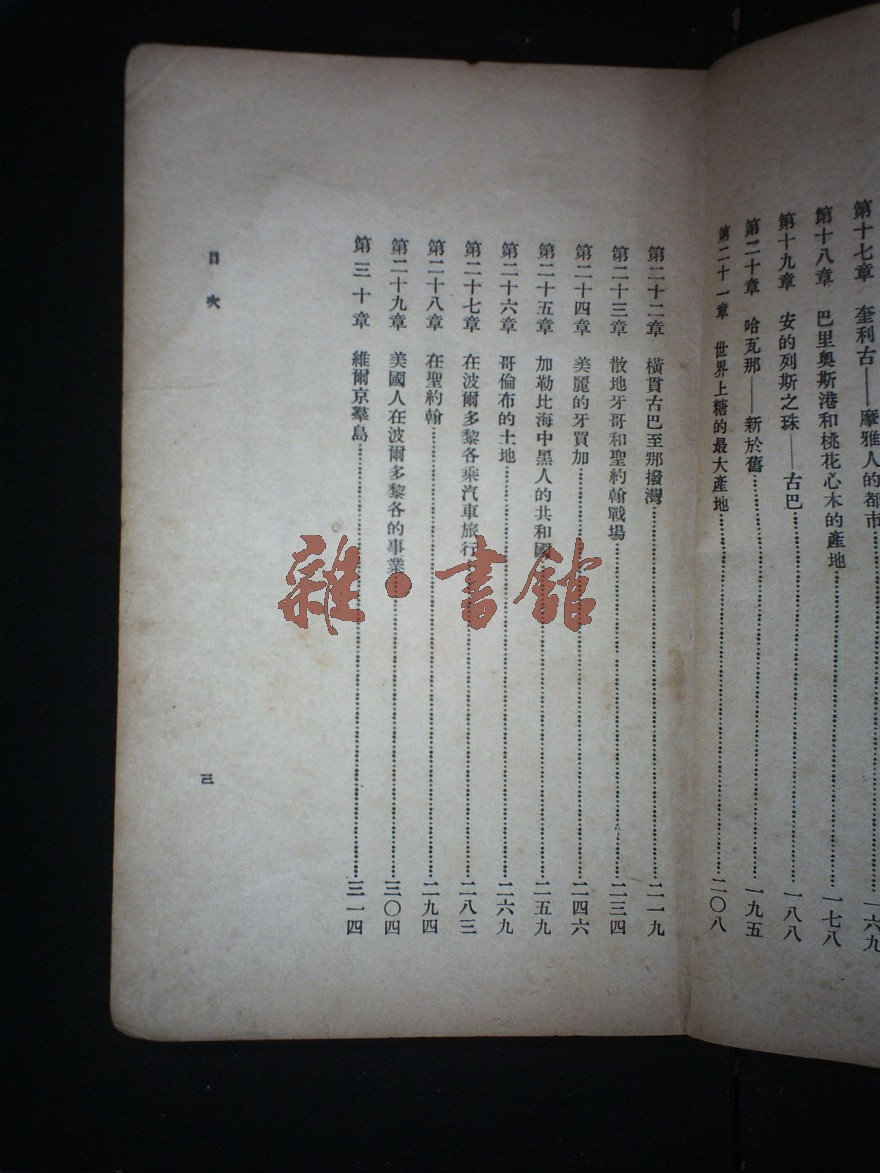 第十七章 奎利古——摩雅人的都市……一六九
第十八章 巴里奧斯港和桃花心木的產地……一七八
第十九章 安的列斯之珠——古巴……一八八
第二十章 哈瓦那——新於舊……一九五
第二十一章 世界上糖的最大產地……二〇八
第二十二章 橫貫古巴至那撥灣……二一九
第二十三章 散地牙哥和聖約翰戰場……二三四
第二十四章 美麗的牙買加……二四六
第二十五章 加勒比海中黑人的共和國……二五九
第二十六章 哥倫布的土地……二六九
第二十七章 在波爾多黎各乘汽車旅行……二八三
第二十八章 在聖約翰……二九四
第二十九章 美國人在波爾多黎各的事業……三〇四
第三十章 維爾京羣島……三一四
目次
三
雜·書館